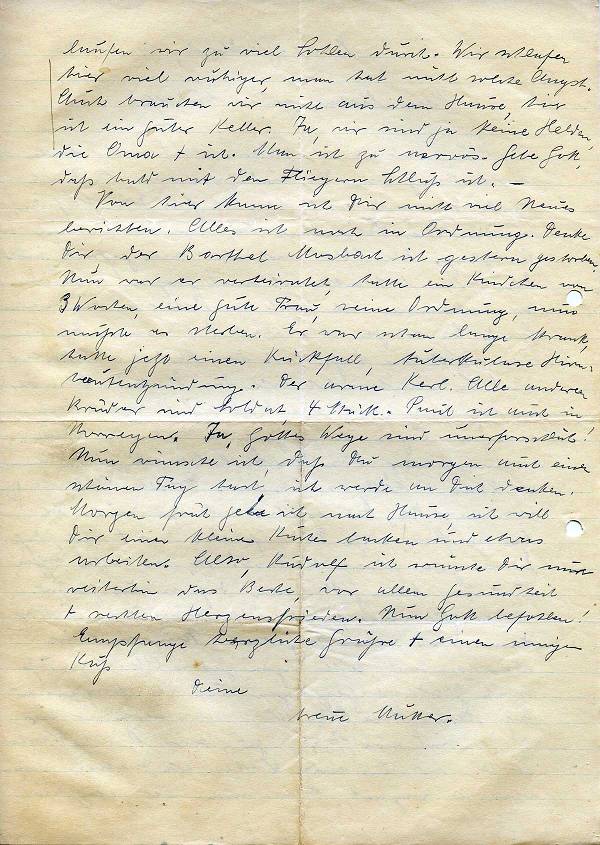 laufen wir zu viel Sohlen durch. Wir schlafen
hier viel ruhiger, man hat nicht solche Angst.
Auch brauchen wir nicht aus dem Hause, hier
ist ein guter Keller. Ja, wir sind ja keine Helden,
die Oma + ich. Man ist zu nervös. Gebe Gott,
daß bald mit den Fliegern Schluß ist. –
Von hier kann ich Dir nicht viel Neues
berichten. Alles ist noch in Ordnung. Denke
Dir der Barthel Mosbach ist gestern gestorben.
Nun war er verheiratet, hatte ein Kindchen von
3 Wochen, eine gute Frau, seine Ordnung, nun
mußte er sterben. Er war schon lange krank,
hatte jetzt einen Rückfall, tuberkulose Hirn-
hautentzündung. Der arme Kerl. Alle anderen
Brüder sind Soldat, 4 Stück. Paul ist auch in
Norwegen. Ja, Gottes Wege sind unerforschlich!
Nun wünsche ich, daß Du morgen auch einen
schönen Tag hast, ich werde an Dich denken.
Morgen früh gehe ich nach Hause, ich will
Dir einen kleinen Kuchen backen und etwas
arbeiten. Also, Rudolf ich wünsche Dir nun
weiterhin das Beste, vor allem Gesundheit
+ rechten Herzensfrieden. Nun Gott befohlen!
Empfange herzliche Grüße + einen innigen
Kuß
Deine
treue Mutter.